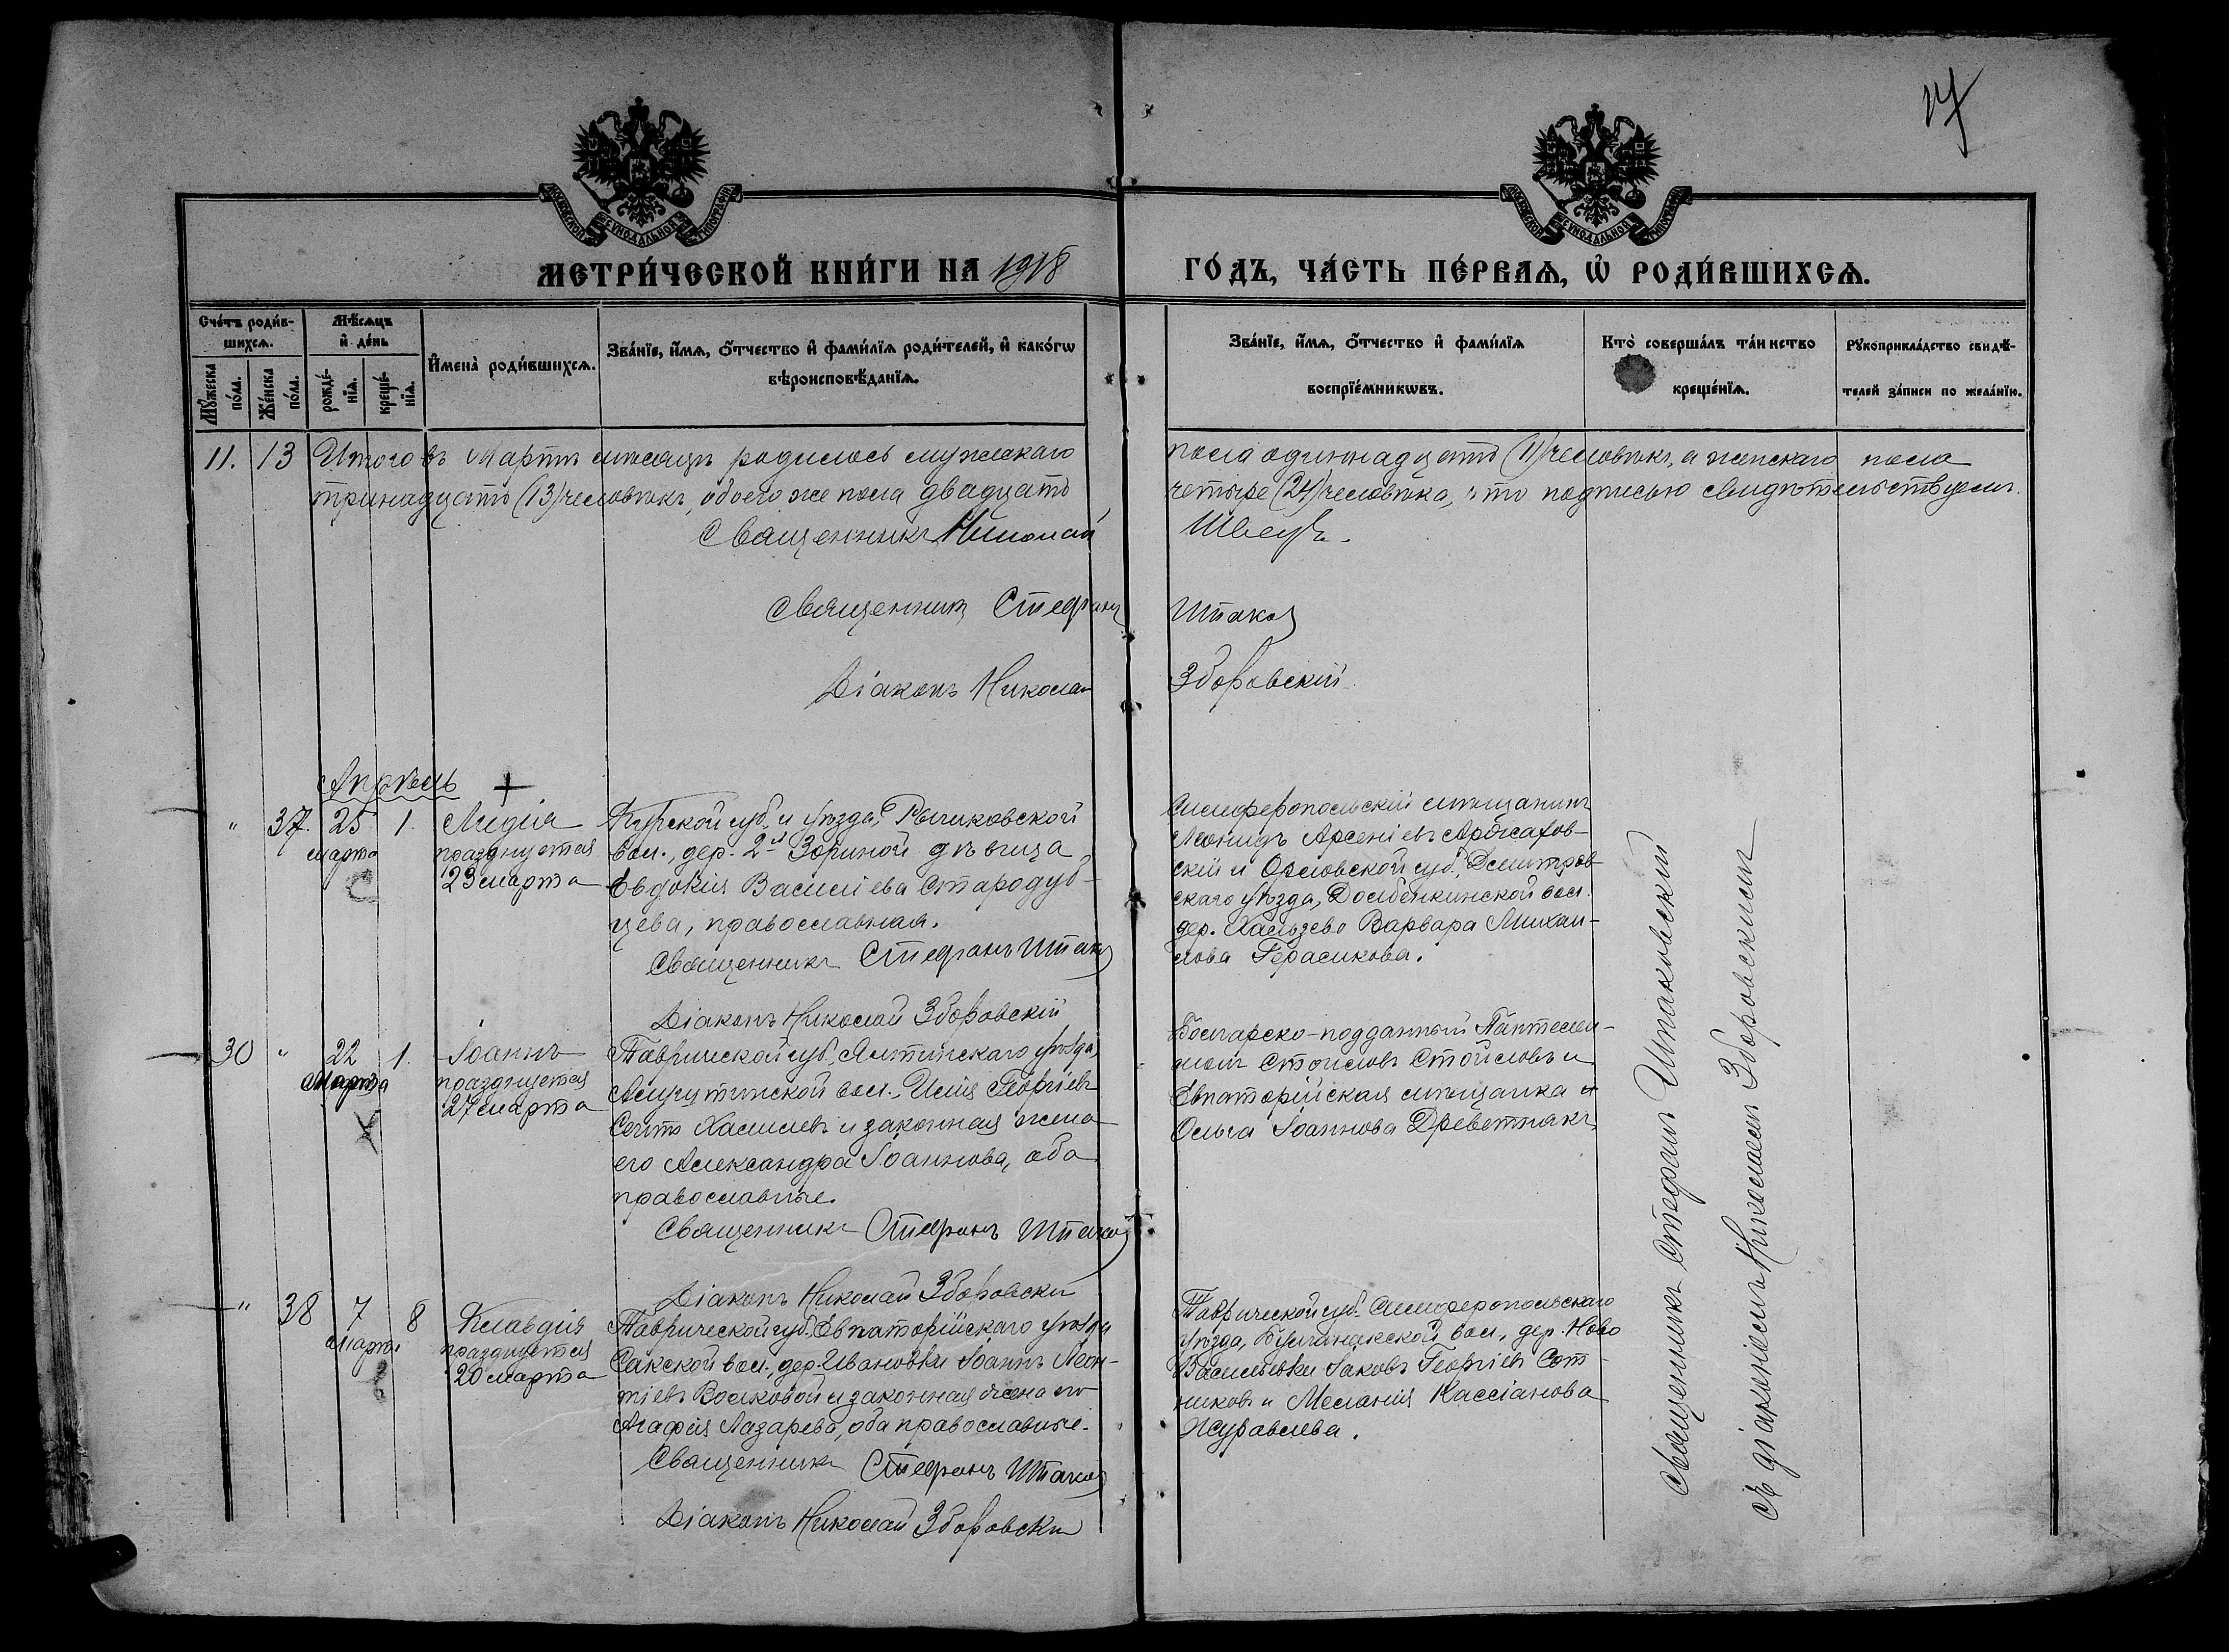 17
МОСКОВСКОЙ СУНОДАЛЬНОЙ ТИПОГРАФІИ
МОСКОВСКОЙ СУНОДАЛЬНОЙ ТИПОГРАФІИ
МЕТРИ́ЧЕСКОЙ КНИ́ГИ НА 1918 ГО́ДЪ, ЧА́СТЬ ПЕ́РВАѦ, Ѡ҆ РОДИ́ВШИХСѦ.
Сче́тъ роди́в-
шихсѧ.
Мꙋ́жеска
по́ла.
Же́нска
по́ла.
Мѣ́сѧцъ
и҆ де́нь
рожде́-
нїѧ.
креще́-
нїѧ.
И҆мена̀ роди́вшихсѧ.
Зва́нїе, и҆́мѧ, ѻ҆́тчество и҆ фами́лїѧ роди́телей, и҆ како́гѡ
вѣроисповѣ́данїѧ.
Зва́нїе, и҆́мѧ, ѻ҆́тчество и҆ фами́лїѧ
воспрїе́мникѡвъ.
Кто̀ соверша́лъ та́инство
креще́нїѧ.
Рꙋкоприкла́дство свидѣ́-
телей за́писи по жела́нїю.
11. 13 Итого въ Мартѣ мѣсяцѣ родилось мужскаго пола одиннадцать (11) человѣкъ, а женскаго пола
тринадцать (13) человѣкъ, обоего же пола двадцать четыре (24) человѣка, что подписью свидѣтельствуемъ.
Священникъ Николай Швецъ.
Священникъ Стефанъ Шпаков
Діаконъ Николай Зборовскій
Апрѣль
" 37. 25 марта 1.
Лидія
празднуется
23 марта
Курской губ. и уѣзда, Рышковской
вол., дер. 2-й Зориной дѣвица
Евдокія Василіева Стародуб-
цева, православная.
Священникъ Стефанъ Шпаков
Діаконъ Николай Зборовскій
Симферопольскій мѣщанинъ
Леонидъ Арсеніевъ
скій и Орловской губ., Дмитров-
скаго уѣзда, Долбенкинской вол.
дер. Хальзево Варвара Михаи-
лова Герасикова.
30 " 22 марта 1.
Іоаннъ
празднуется
27 марта
Таврической губ., Ялтинскаго уѣзда,
Алуштинской вол., Илія Георгіевъ
Сеитъ Халиловъ и законная жена
его Александра Іоаннова, оба
православные.
Священникъ Стефанъ Шпаков
Діаконъ Николай Зборовски
Болгарско-подданный Пантелей-
монъ Стоиловъ Стойловъ и
Евпаторійская мѣщанка
Ольга Іоаннова Древетнякъ
" 38 7 марта 8
Клавдія
празднуется
20 марта
Таврической губ. Евпаторійскаго уѣзда
Сакской вол., дер. Ивановки Іоаннъ Леон-
тіевъ Волковой и законная жена его
Агафія Лазарева, оба православные.
Священникъ Стефанъ Шпаков
Діаконъ Николай Зборовски
Таврической губ. Симферопольскаго
уѣзда, Булганакской вол., дер. Ново
Васильевки Іаковъ Георгіевъ Сот-
никовъ и Меланія Кассіанова
Журавлева.
Священникъ Стефанъ Шпаковскій
съ діакономъ Николаемъ Зборовскимъ